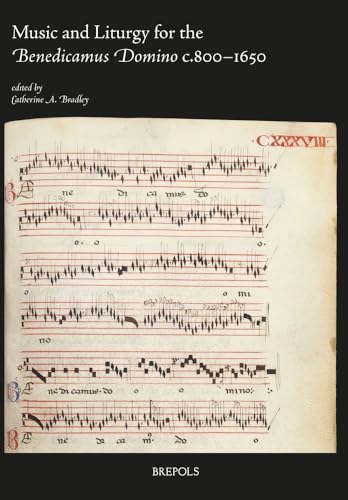 Music and Liturgy for the
Benedicamus Domino c.800–1650
edited by
Catherine A. Bradley
CXXXVIII.
Be ne di ca mus do
o o o
o mi
no
Be ne di camus do o mino
Be ne di ca mº do o
BREPOLS